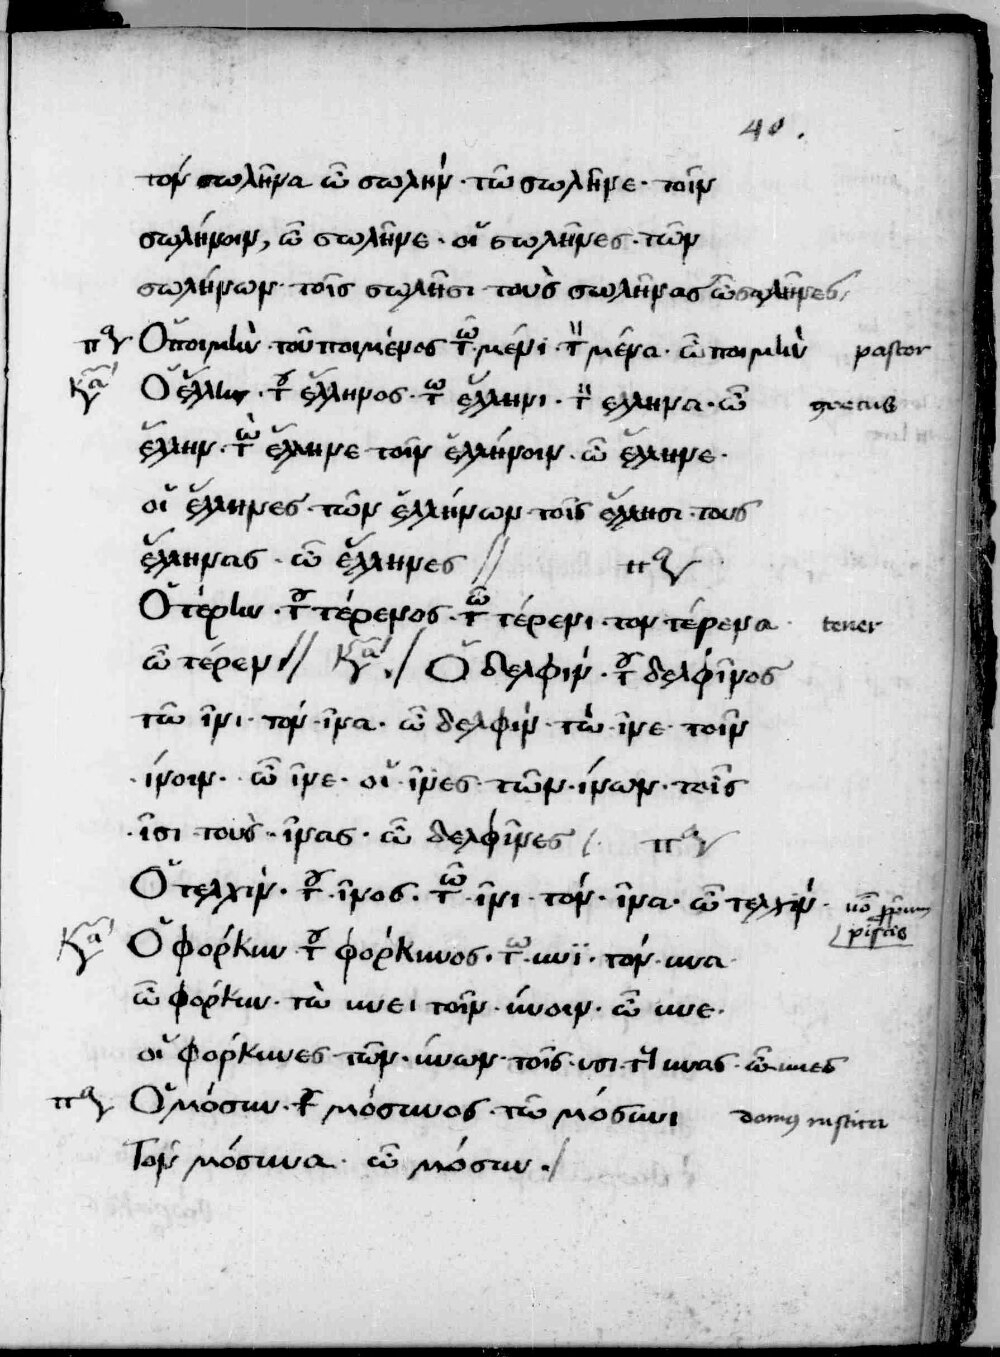 40.
τὸν σωλῆνα ὦ σωλήν · τὼ σωλῆνε · τοῖν
σωλήνοιν, ὦ σωλῆνε · οἱ σωλῆνες · τῶν
σωλήνων · τοῖς σωλῆσι τοὺς σωλῆνας ὦ σωλῆνες /
Ὁ ποιμὴν · τοῦ ποιμένος τῶ · μένι · τὸν μένα · ὦ ποιμὴν pastor
Ὁ ἕλλην · τοῦ ἕλληνος · τῶ ἕλληνι · τὸν ἕλληνα · ὦ grecus
ἕλλην · τὼ ἕλληνε τοῖν ἑλλήνοιν · ὦ ἕλληνε ·
οἱ ἕλληνες · τῶν ἑλλήνων · τοῖς ἕλλησι · τοὺς
ἕλληνας · ὦ ἕλληνες //
Ὁ τέρην · τοῦ τέρενος · τῶ τέρενι · τον τέρενα · tener
ὦ τέρεν // Ὁ δελφίν · τοῦ δελφῖνος
τῶ ῖνι · τὸν · ῖνα · ὦ δελφίν · τὼ · ῖνε · τοῖν
· ίνοιν · ὦ ῖνε · οἱ · ῖνες · τῶν · ίνων · τοῖς
· ῖσι τοὺς · ῖνας · ὦ δελφῖνες /
Ὁ τελχίν · τοῦ · ῖνος · τῶ · ῖνι · τόν · ῖνα · ὦ τελχίν ·
piscis
Ὁ φόρκυν τοῦ φόρκυνος · τῶ · υνϊ · τόν · υνα
ὦ φόρκυν · τὼ υνει τοῖν · ύνοιν · ὦ υνε ·
οἱ φόρκυνες τῶν · ύνων · τοῖς · υσι · τοὺς υνας · ὦ υνες
Ὁ μόσυν · τοῦ μόσυνος · τῶ μόσυνι domus rustica
Τὸν μόσυνα · ὦ μόσυν · /